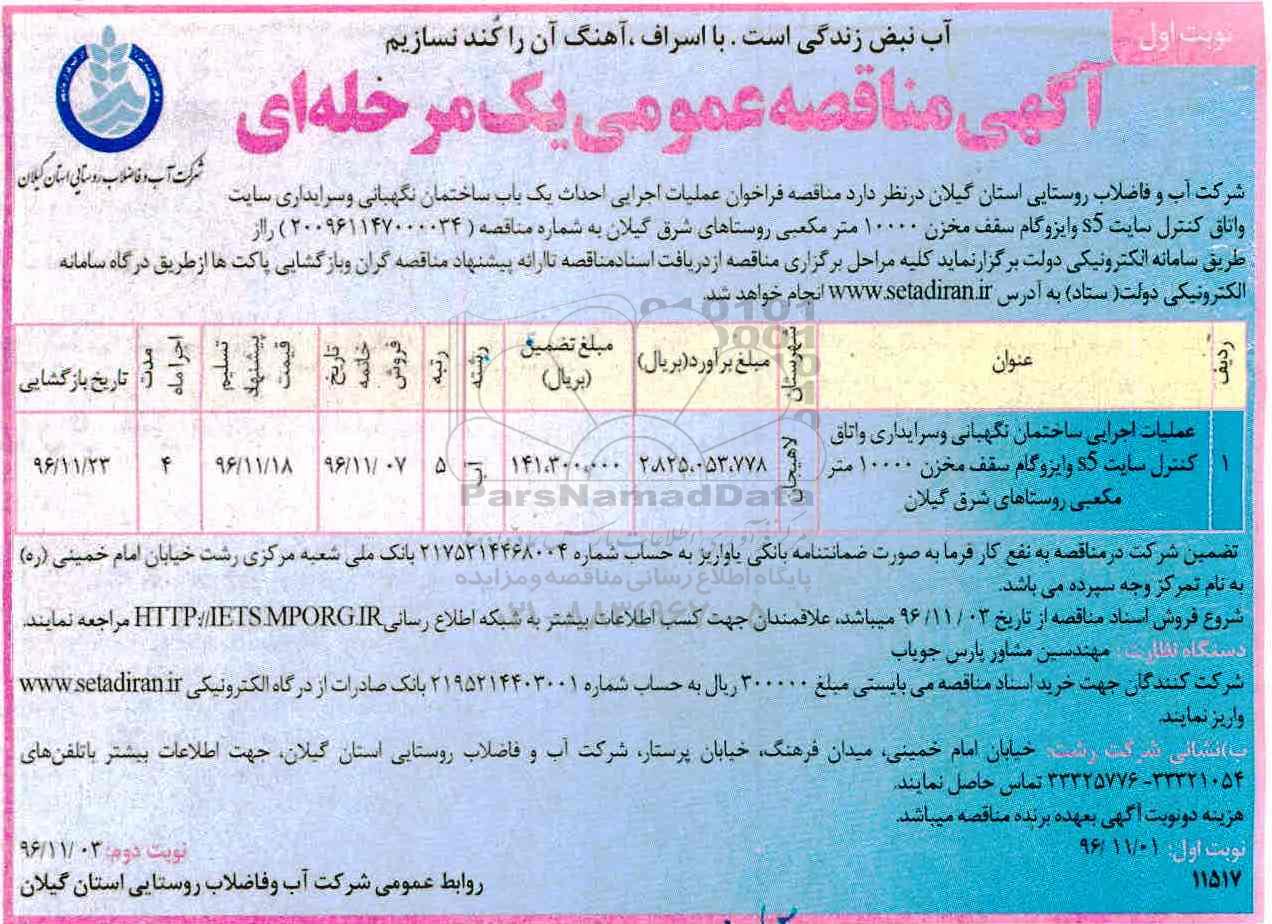 نوبت اول
آب نبض زندگی است . با اسراف ،آهنگ آن را کُند نسازیم
آگهی مناقصه عمومی یک مرحله‌ای
شرکت آب و فاضلاب روستایی استان گیلان
شرکت آب و فاضلاب روستایی استان گیلان درنظر دارد مناقصه فراخوان عملیات اجرایی احداث یک باب ساختمان نگهبانی وسرایداری سایت
واتاق کنترل سایت s5 وایزوگام سقف مخزن ۱۰۰۰۰ متر مکعبی روستاهای شرق گیلان به شماره مناقصه ( ۲۰۰۹۶۱۱۴۷۰۰۰۰۳۴ ) رااز
طریق سامانه الکترونیکی دولت برگزارنماید کلیه مراحل برگزاری مناقصه ازدریافت اسنادمناقصه تاارائه پیشنهاد مناقصه گران وبازگشایی پاکت ها ازطریق درگاه سامانه
الکترونیکی دولت( ستاد) به آدرس www.setadiran.ir انجام خواهد شد.
ردیف عنوان شهرستان مبلغ برآورد(بریال) مبلغ تضمین (بریال) رشته رتبه تاریخ خاتمه فروش تسلیم پیشنهاد قیمت مدت اجرا ماه تاریخ بازگشایی
عملیات اجرایی ساختمان نگهبانی وسرایداری واتاق
۱ کنترل سایت s5 وایزوگام سقف مخزن ۱۰۰۰۰ متر لاهیجان ۲،۸۲۵،۰۵۳،۷۷۸ ۱۴۱،۳۰۰،۰۰۰ آب ۵ ۹۶/۱۱/ ۰۷ ۹۶/۱۱/۱۸ ۴ ۹۶/۱۱/۲۳
مکعبی روستاهای شرق گیلان
ParsNamadData
تضمین شرکت درمناقصه به نفع کار فرما به صورت ضمانتنامه بانکی یاواریز به حساب شماره ۲۱۷۵۲۱۴۴۶۸۰۰۴ بانک ملی شعبه مرکزی رشت خیابان امام خمینی (ره)
پایگاه اطلاع رسانی مناقصه و مزایده
به نام تمرکز وجه سپرده می باشد.
شروع فروش اسناد مناقصه از تاریخ ۰۳ / ۱۱/ ۹۶ میباشد، علاقمندان جهت کسب اطلاعات بیشتر به شبکه اطلاع رسانیHTTP://IETS.MPORG.IR مراجعه نمایند.
دستگاه نظارت : مهندسین مشاور پارس جویاب
شرکت کنندگان جهت خرید اسناد مناقصه می بایستی مبلغ ۳۰۰۰۰۰ ریال به حساب شماره ۲۱۹۵۲۱۴۴۰۳۰۰۱ بانک صادرات از درگاه الکترونیکی www.setadiran.ir
واریز نمایند.
ب)نشانی شرکت رشت: خیابان امام خمینی، میدان فرهنگ، خیابان پرستار، شرکت آب و فاضلاب روستایی استان گیلان، جهت اطلاعات بیشتر باتلفن‌های
۳۳۳۲۱۰۵۴- ۳۳۳۲۵۷۷۶ تماس حاصل نمایند.
هزینه دونوبت آگهی بعهده برنده مناقصه میباشد.
نوبت اول: ۹۶/ ۱۱/۰۱
نوبت دوم: ۹۶/۱۱/ ۰۳
۱۱۵۱۷
روابط عمومی شرکت آب وفاضلاب روستایی استان گیلان